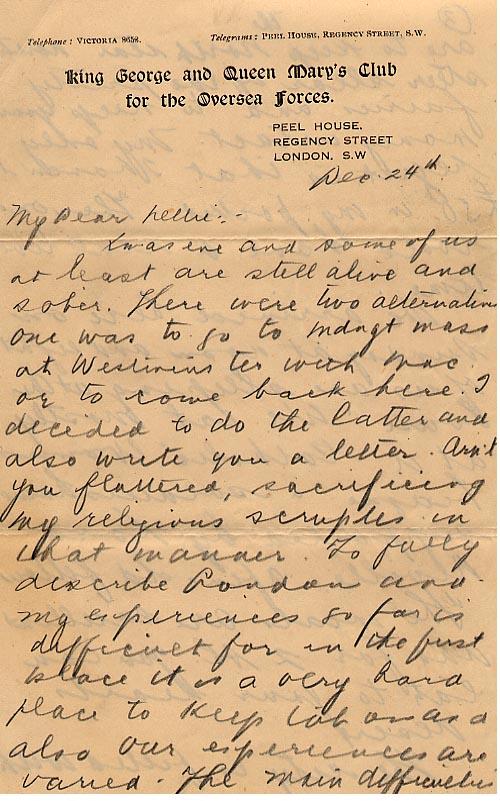 Telephone: VICTORIA 8658.
Telegrams: PEEL HOUSE, REGENCY STREET, S.W.
King George and Queen Mary's Club
for the Oversea Forces.
PEEL HOUSE,
REGENCY STREET
LONDON, S.W
Dec. 24th.
My Dear Nellie:-
Xmas eve and some of us
at least are still alive and
sober. There were two alternative
one was to go to mdngt mass
at Westminster with Mac
or to come back here. I
decided to do the latter and
also write you a letter. Arn't
you flattered, sacrificing
my religious scruples in
that manner. To fully
describe London and
my experiences so far is
difficult for in the first
place it is a very hard
place to keep tab on and
also our experiences are
varied. The main difficulty